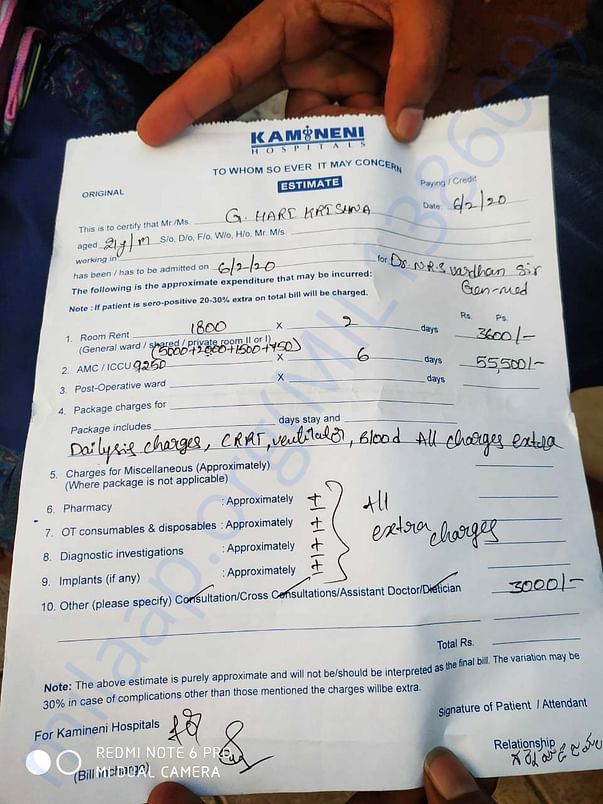 KAMINENI
HOSPITALS
TO WHOM SO EVER IT MAY CONCERN
ORIGINAL
ESTIMATE
Paying / Credit
Date: 6/2/20
This is to certify that Mr./Ms. G. HARI KRISHNA
aged 21y/m S/o, D/o, F/o, W/o, H/o, Mr. M/s.
working in
has been / has to be admitted on 6/2/20 for Dr. N.R.S vardhan Sir
Gen-med
The following is the approximate expenditure that may be incurred:
Note : If patient is sero-positive 20-30% extra on total bill will be charged.
Rs. Ps.
1. Room Rent 1800 x 2 days 3600/-
(General ward / shared / private room II or I)
(5000+2000+1500+750)
2. AMC / ICCU 9250 x 6 days 55,500/-
3. Post-Operative ward x days
4. Package charges for
Package includes days stay and
Dailysis charges, CRRT, ventilator, Blood All charges extra
5. Charges for Miscellaneous (Approximately)
(Where package is not applicable)
6. Pharmacy : Approximately ±
7. OT consumables & disposables : Approximately ±
8. Diagnostic investigations : Approximately ±
9. Implants (if any) : Approximately ±
All
extra charges
10. Other (please specify) Consultation/Cross Consultations/Assistant Doctor/Dietician 3000/-
Total Rs.
Note: The above estimate is purely approximate and will not be/should be interpreted as the final bill. The variation may be
30% in case of complications other than those mentioned the charges willbe extra.
For Kamineni Hospitals
Signature of Patient / Attendant
(Bill Incharge)
Relationship
REDMI NOTE 6 PRO
MI DUAL CAMERA